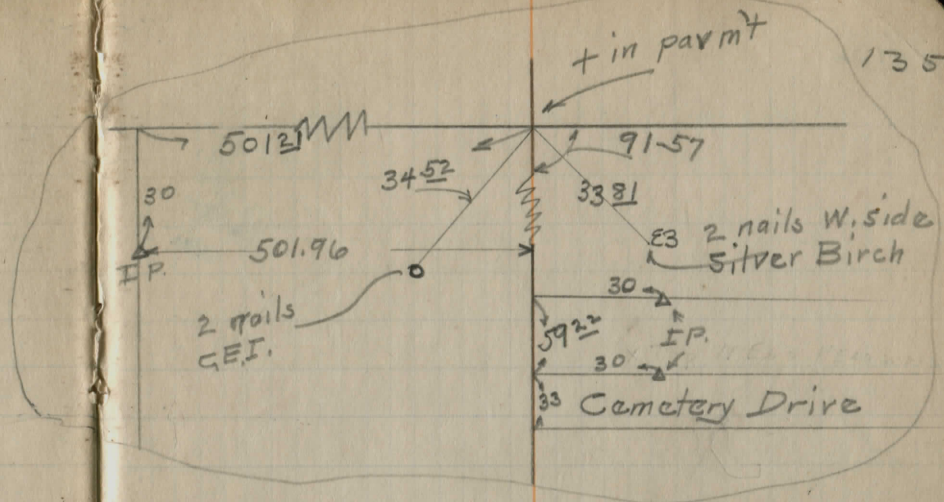 + in pavm't
135
501 21
91-57
34 52
33 81
30
501.96
I.P.
2 nails W. side
Silver Birch
30
2 nails
59 22
I.P.
30
33
Cemetery Drive